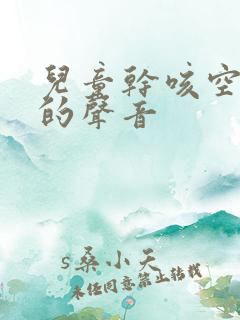 兒童幹咳空
的聲音
s桑小天
未经同意禁止转载